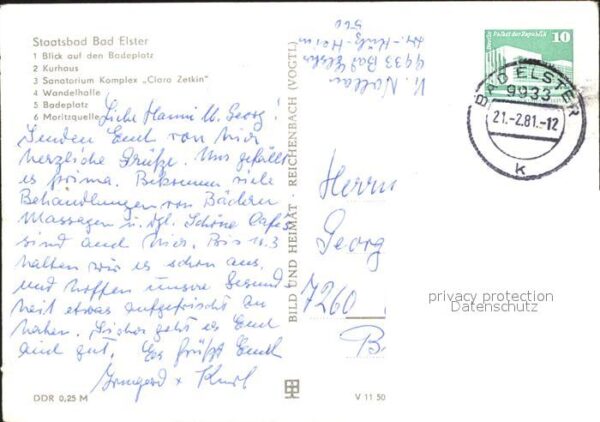 Staatsbad Bad Elster
1 Blick auf den Badeplatz
2 Kurhaus
3 Sanatorium Komplex „Clara Zetkin"
4 Wandelhalle
5 Badeplatz
6 Moritzquelle
Liebe Hanni u. Georg!
Senden Euch von hier
herzliche Grüße. Uns gefällt
es prima. Bekommen viele
Behandlungen von Bädern
Massagen u. dgl. Schöne Cafes
sind auch hier. Bis 11.3
halten wir es schon aus,
und hoffen unsre Gesund
heit etwas aufgefrischt zu
haben. Sicher geht es Euch
auch gut. Es grüßt Euch
Irmgard + Kurt
DDR 0,25 M
BILD UND HEIMAT · REICHENBACH (VOGTL)
V 11 50
9933 Bad Elster
560
Berlin Palast der Republik
10
DDR
BAD ELSTER
9933
21.-2.81.-12
k
Herrn
Georg
7260
B
privacy protection
Datenschutz